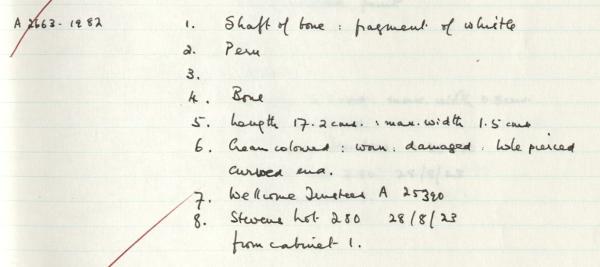 A 2663.1982
1. Shaft of bone : fragment of whistle
2. Peru
3.
4. Bone
5. Length 17.2 cms. : max. width 1.5 cms
6. Cream coloured : worn : damaged : hole pierced
curved end.
7. Wellcome Trustees A 25390
8. Stevens Lot 280 28/8/23
from cabinet 1.